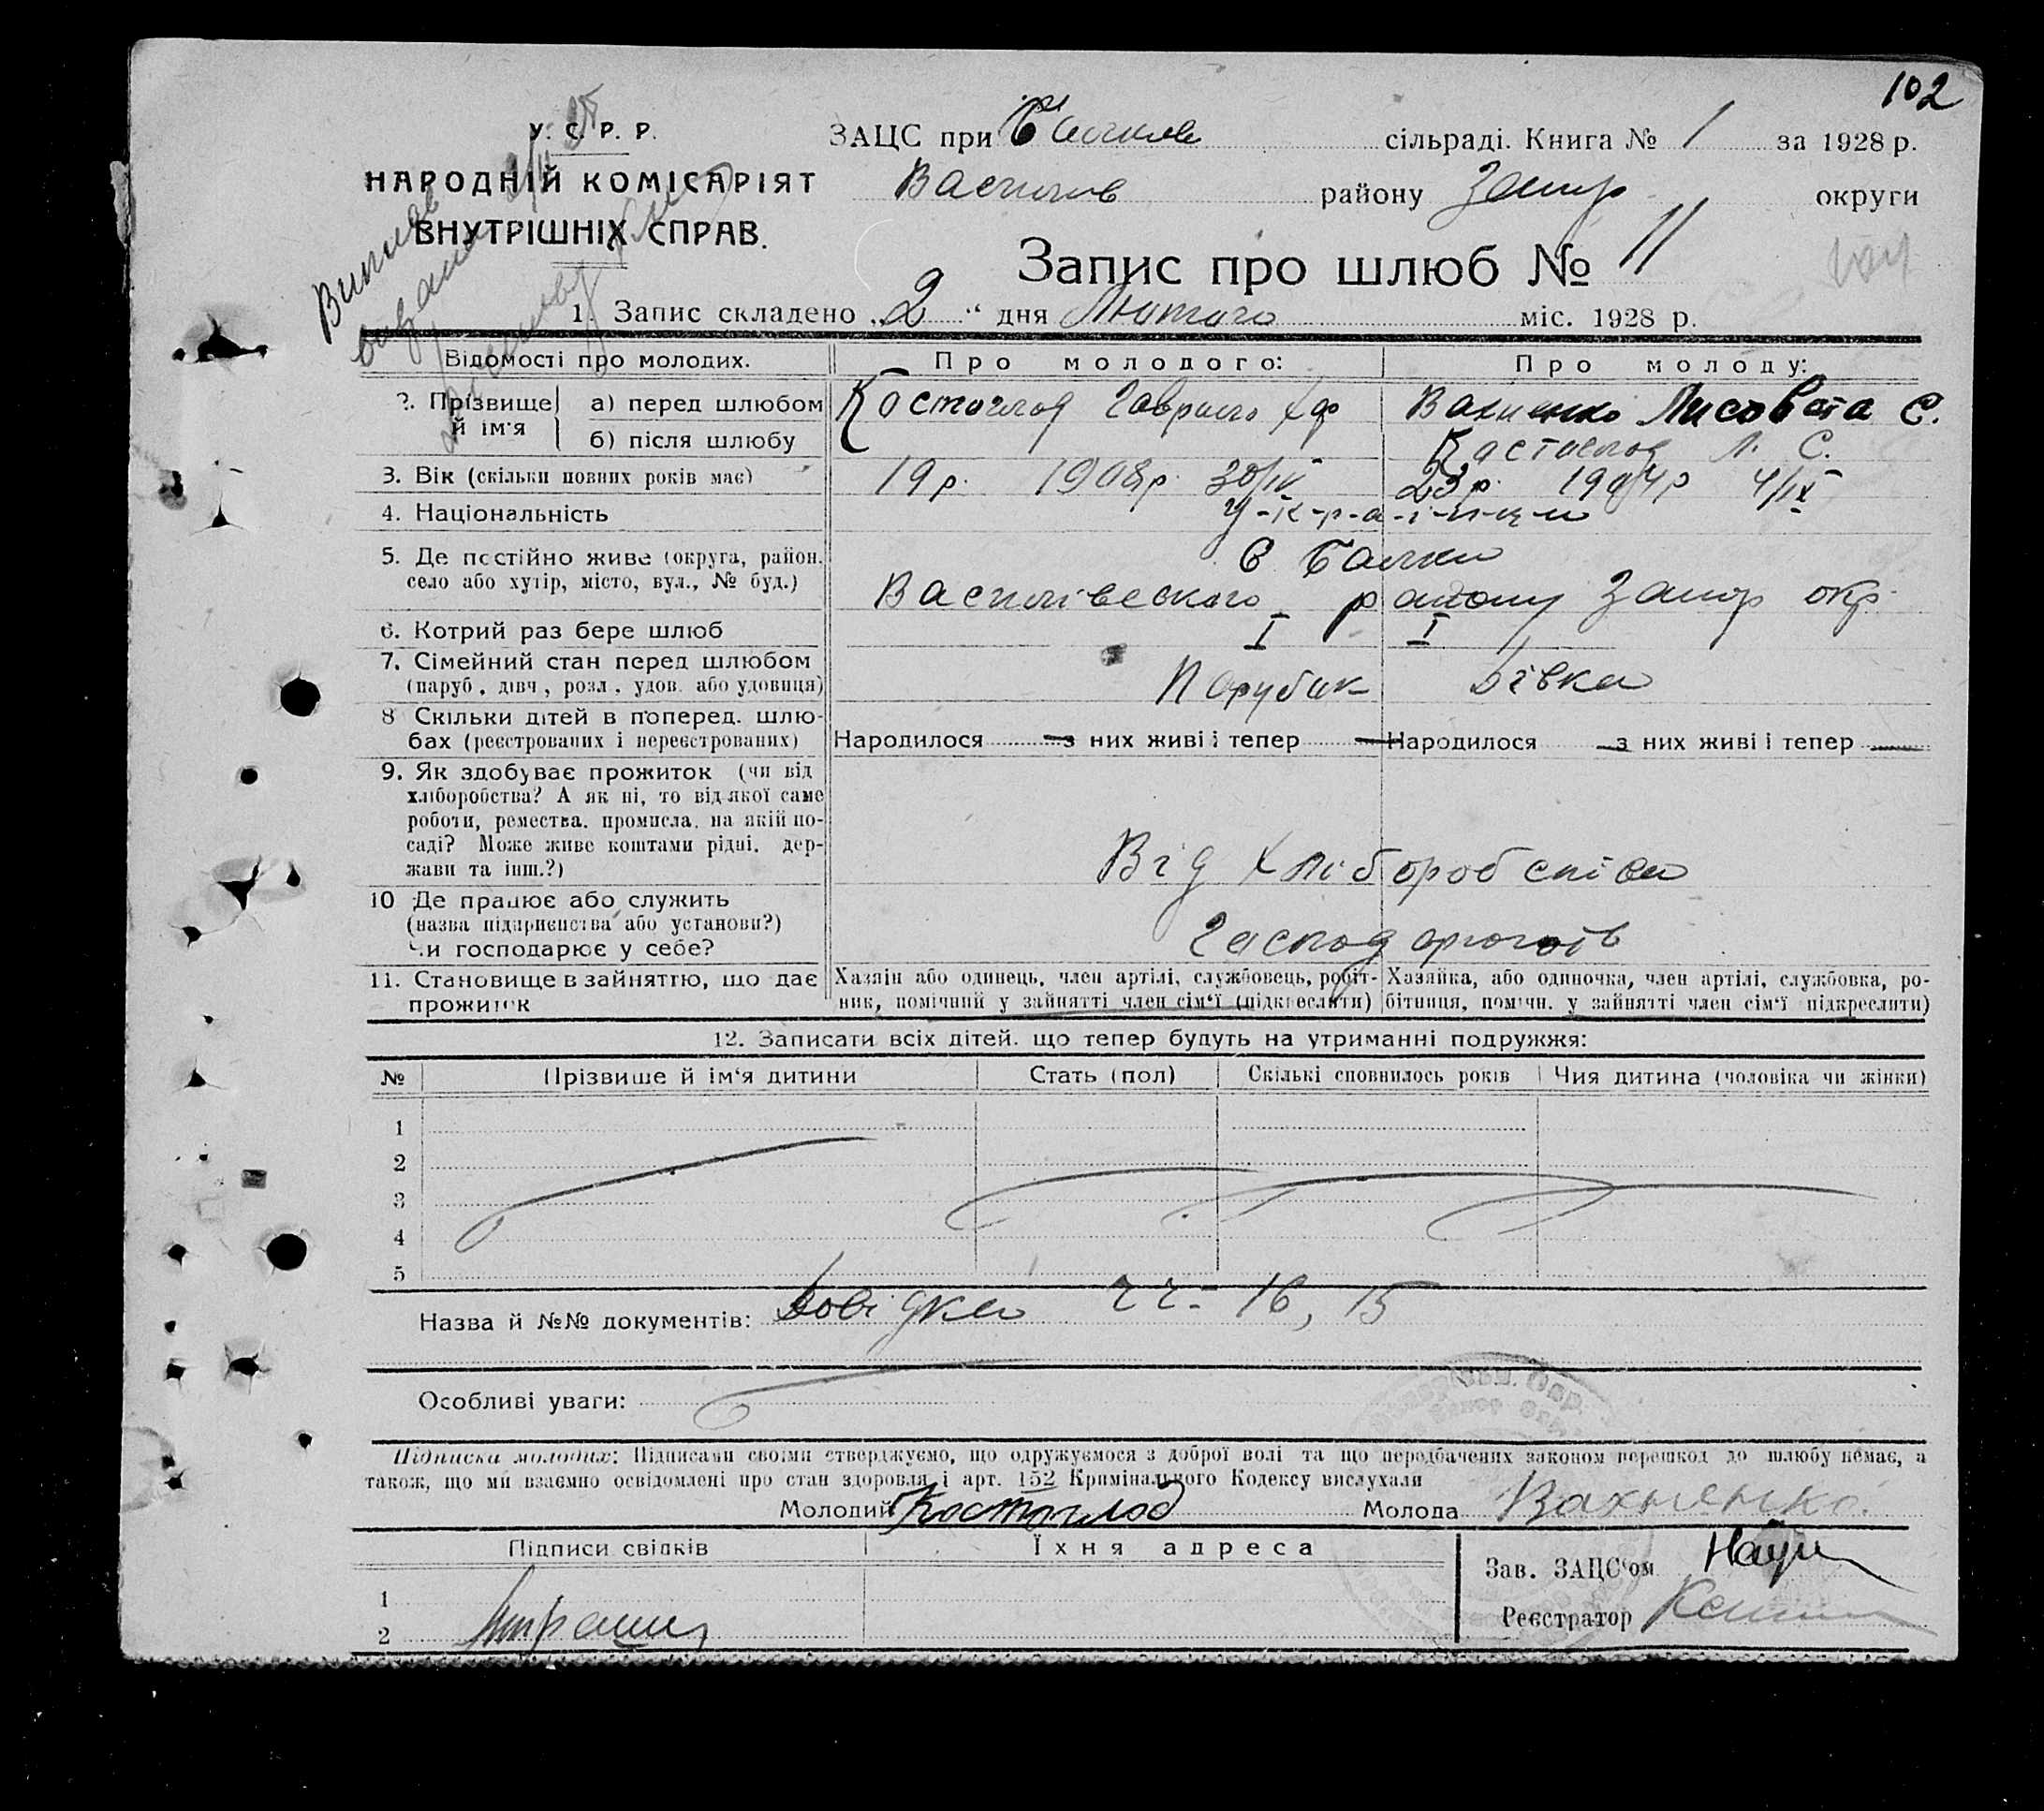 102
У. С. Р. Р.
НАРОДНІЙ КОМІСАРІЯТ
ВНУТРІШНІХ СПРАВ.
ЗАЦС при сільраді. Книга № 1 за 1928 р.
Василів району Запор округи
Запис про шлюб № 11
1. Запис складено „2“ дня Лютого міс. 1928 р.
Відомості про молодих. Про молодого: Про молоду:
2. Прізвище й ім'я а) перед шлюбом Костоглод Гаврило Хар Вахненко Лисовета С.
б) після шлюбу Костоглод Л. С.
3. Вік (скільки повних років має) 19 р. 1908 р. 30/IV 23 р. 1904 р 4/IX
4. Національність У-к-р-а-ї-н-ц-и
5. Де постійно живе (округа, район, с Балки
село або хутір, місто, вул., № буд.) Василівського району Запор окр.
6. Котрий раз бере шлюб I I
7. Сімейний стан перед шлюбом
(паруб., дівч., розл., удов. або удовиця) Парубик Дівка
8 Скільки дітей в поперед. шлю-
бах (реєстрованих і нереєстрованих) Народилося — з них живі і тепер — Народилося — з них живі і тепер —
9. Як здобуває прожиток (чи від
хліборобства? А як ні, то від якої саме
роботи, ремества, промисла, на якій по-
саді? Може живе коштами рідні, дер-
жави та інш.?) Від Хліборобства
10 Де працює або служить
(назва підприємства або установи?)
Чи господарює у себе?
11. Становище в зайняттю, що дає прожиток
Хазяїн або одинець, член артілі, службовець, робіт-
ник, помічний у зайнятті член сім‘ї (підкреслити)
Хазяйка, або одиночка, член артілі, службовка, ро-
бітниця, помічн. у зайнятті член сім‘ї підкреслити)
12. Записати всіх дітей, що тепер будуть на утриманні подружжя:
№ Прізвище й ім‘я дитини Стать (пол) Скількі сповнилось років Чия дитина (чоловіка чи жінки)
1
2
3
4
5
Назва й №№ документів: Довідка 16, 15
Особливі уваги:
Підписка молодих: Підписами своїми стверджуємо, що одружуємося з доброї волі та що передбачених законом перешкод до шлюбу немає, а
також, що ми взаємно освідомлені про стан здоровля і арт. 152 Кримінального Кодексу вислухали
Молодий Костоглод Молода Вахненко
Підписи свідків Їхня адреса
Зав. ЗАЦС‘ом
1
Реєстратор
2